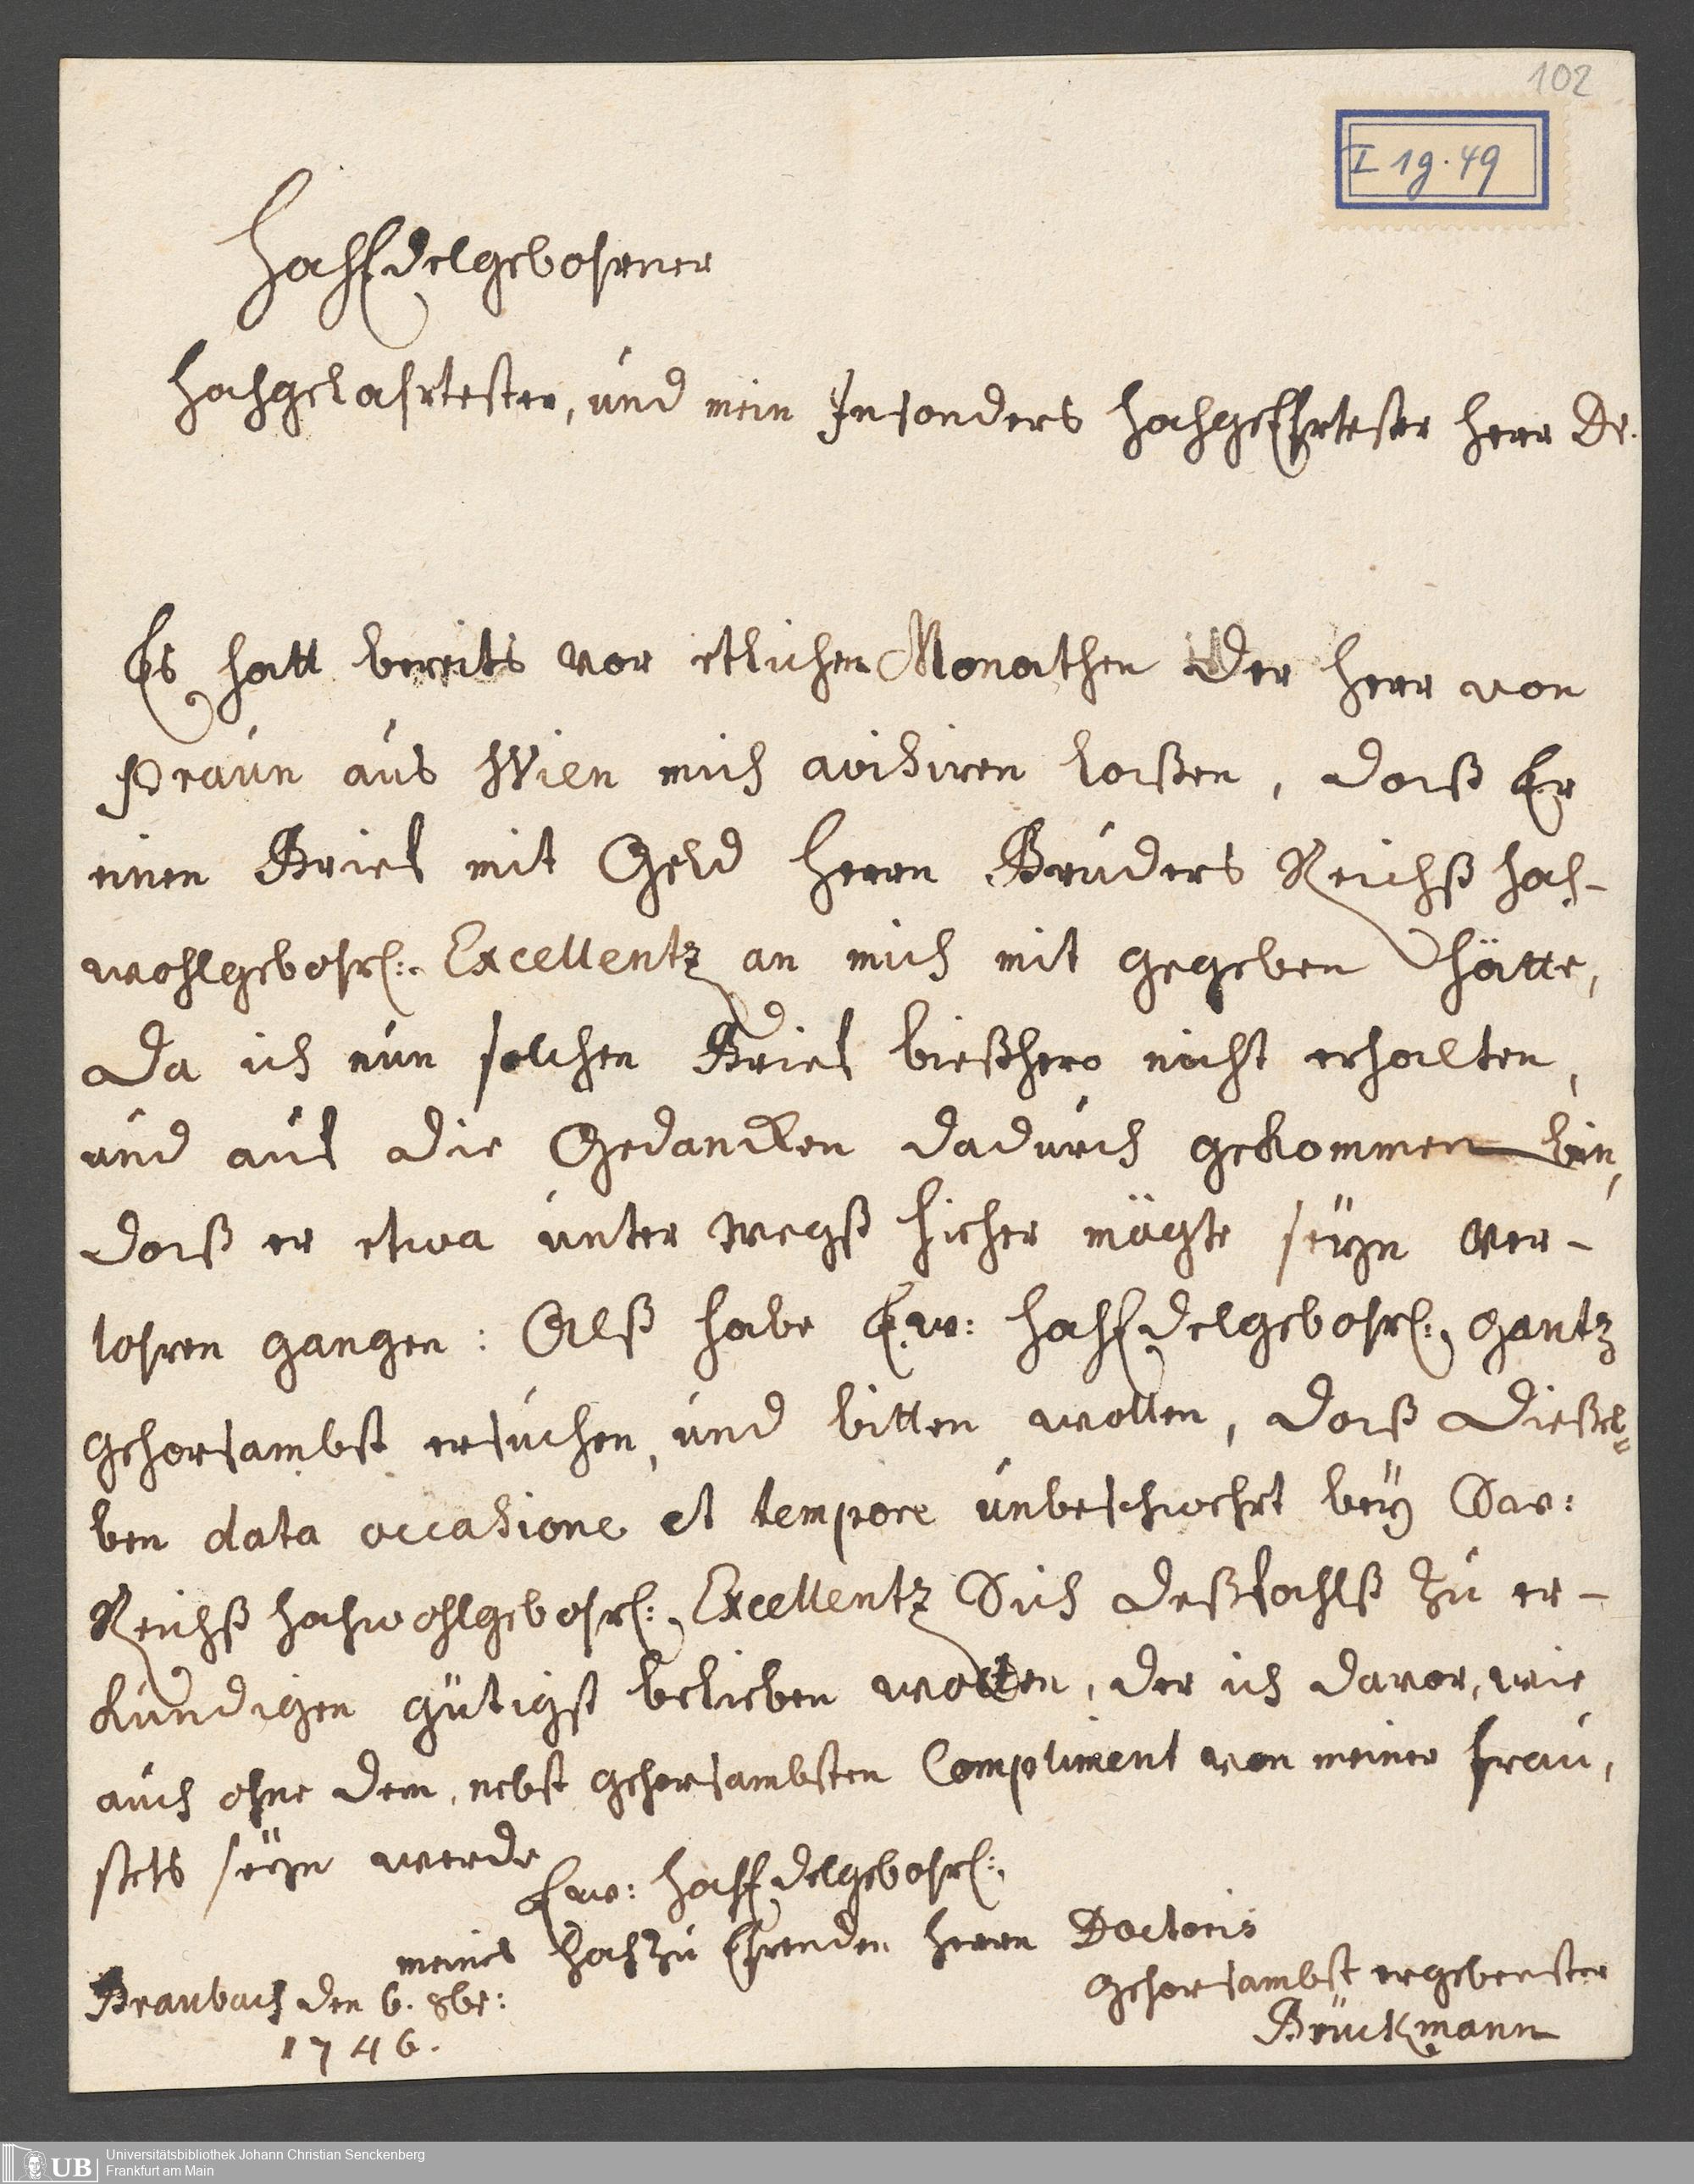 102
I 19. 49
HochEdelgebohrner
Hochgelahrtester, und mein Insonders HochgeEhrtester Herr Dr.
Es hatt bereits vor etlichen Monathen der Herr von
Praun aus Wien mich avisiren laßen, daß Er
einen Brief mit Geld Herrn Bruders Reichß Hoch-
wohlgebohrl: Excellentz an mich mit gegeben hätte,
Da ich nun solchen Brief bießhero nicht erhalten,
und auf die Gedancken dadurch gekommen bin,
daß er etwa unter wegß hieher mögte seyn ver-
lohren gangen: Alß habe Ew: HochEdelgebohrl: gantz
gehorsambst ersuchen, und bitten wollen, daß dießel=
ben data occasione et tempore unbeschwehrt bey Sr:
Reichß Hochwohlgebohrl: Excellentz Sich deßfahlß zu er-
kundigen gütigst belieben wollen, der ich davor, wie
auch ohne dem, nebst gehorsambsten Compliment von meiner Frau,
stets seyn werde
Ew: HochEdelgebohrl:
meines HochzuEhrenden Herrn Doctoris
gehorsambst ergebenster
Braubach den 6. 8br:
Brückmann
1746.
UB
Universitätsbibliothek Johann Christian Senckenberg
Frankfurt am Main